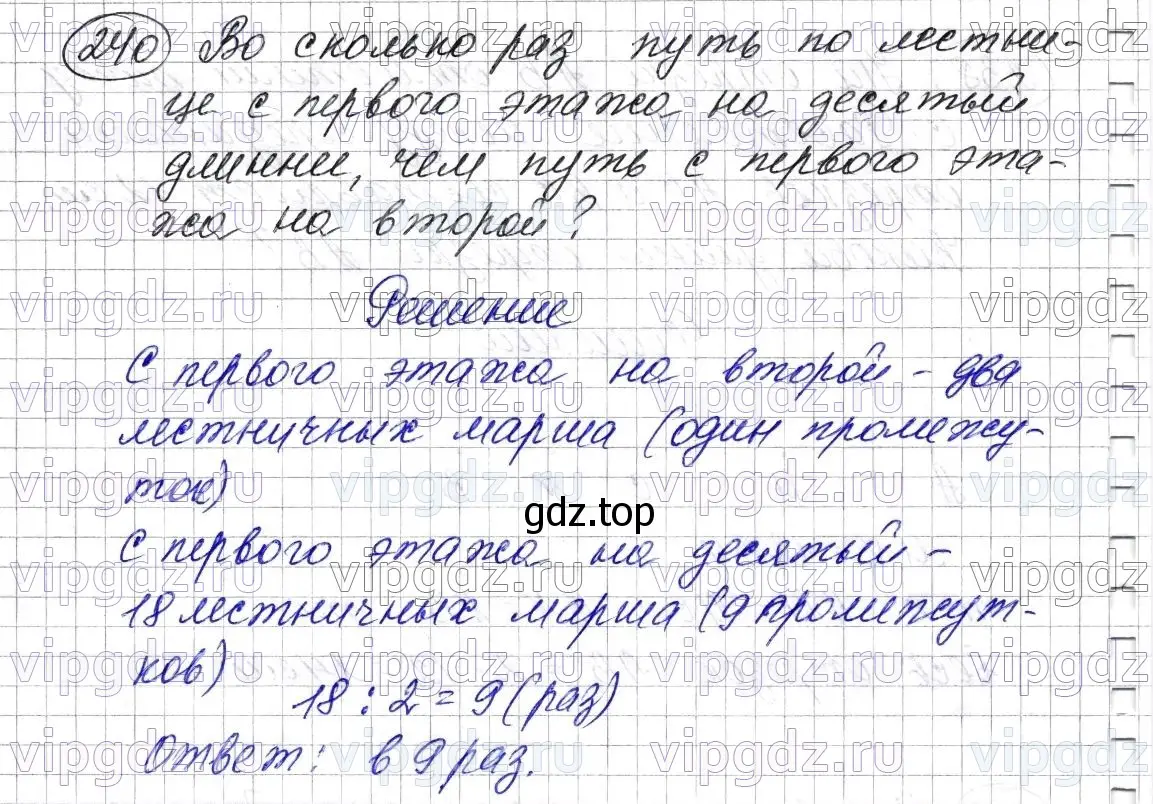 240 Во сколько раз путь по лестни-
це с первого этажа на десятый
длинни, чем путь с первого эта-
жа на второй?
Решение
С первого этажа на второй - два
лестничных марша (один промежу-
ток)
gdz.top
С первого этажа на десятый -
18 лестничных марша (9 промежут-
ков)
18 : 2 = 9 (раз)
Ответ: в 9 раз.